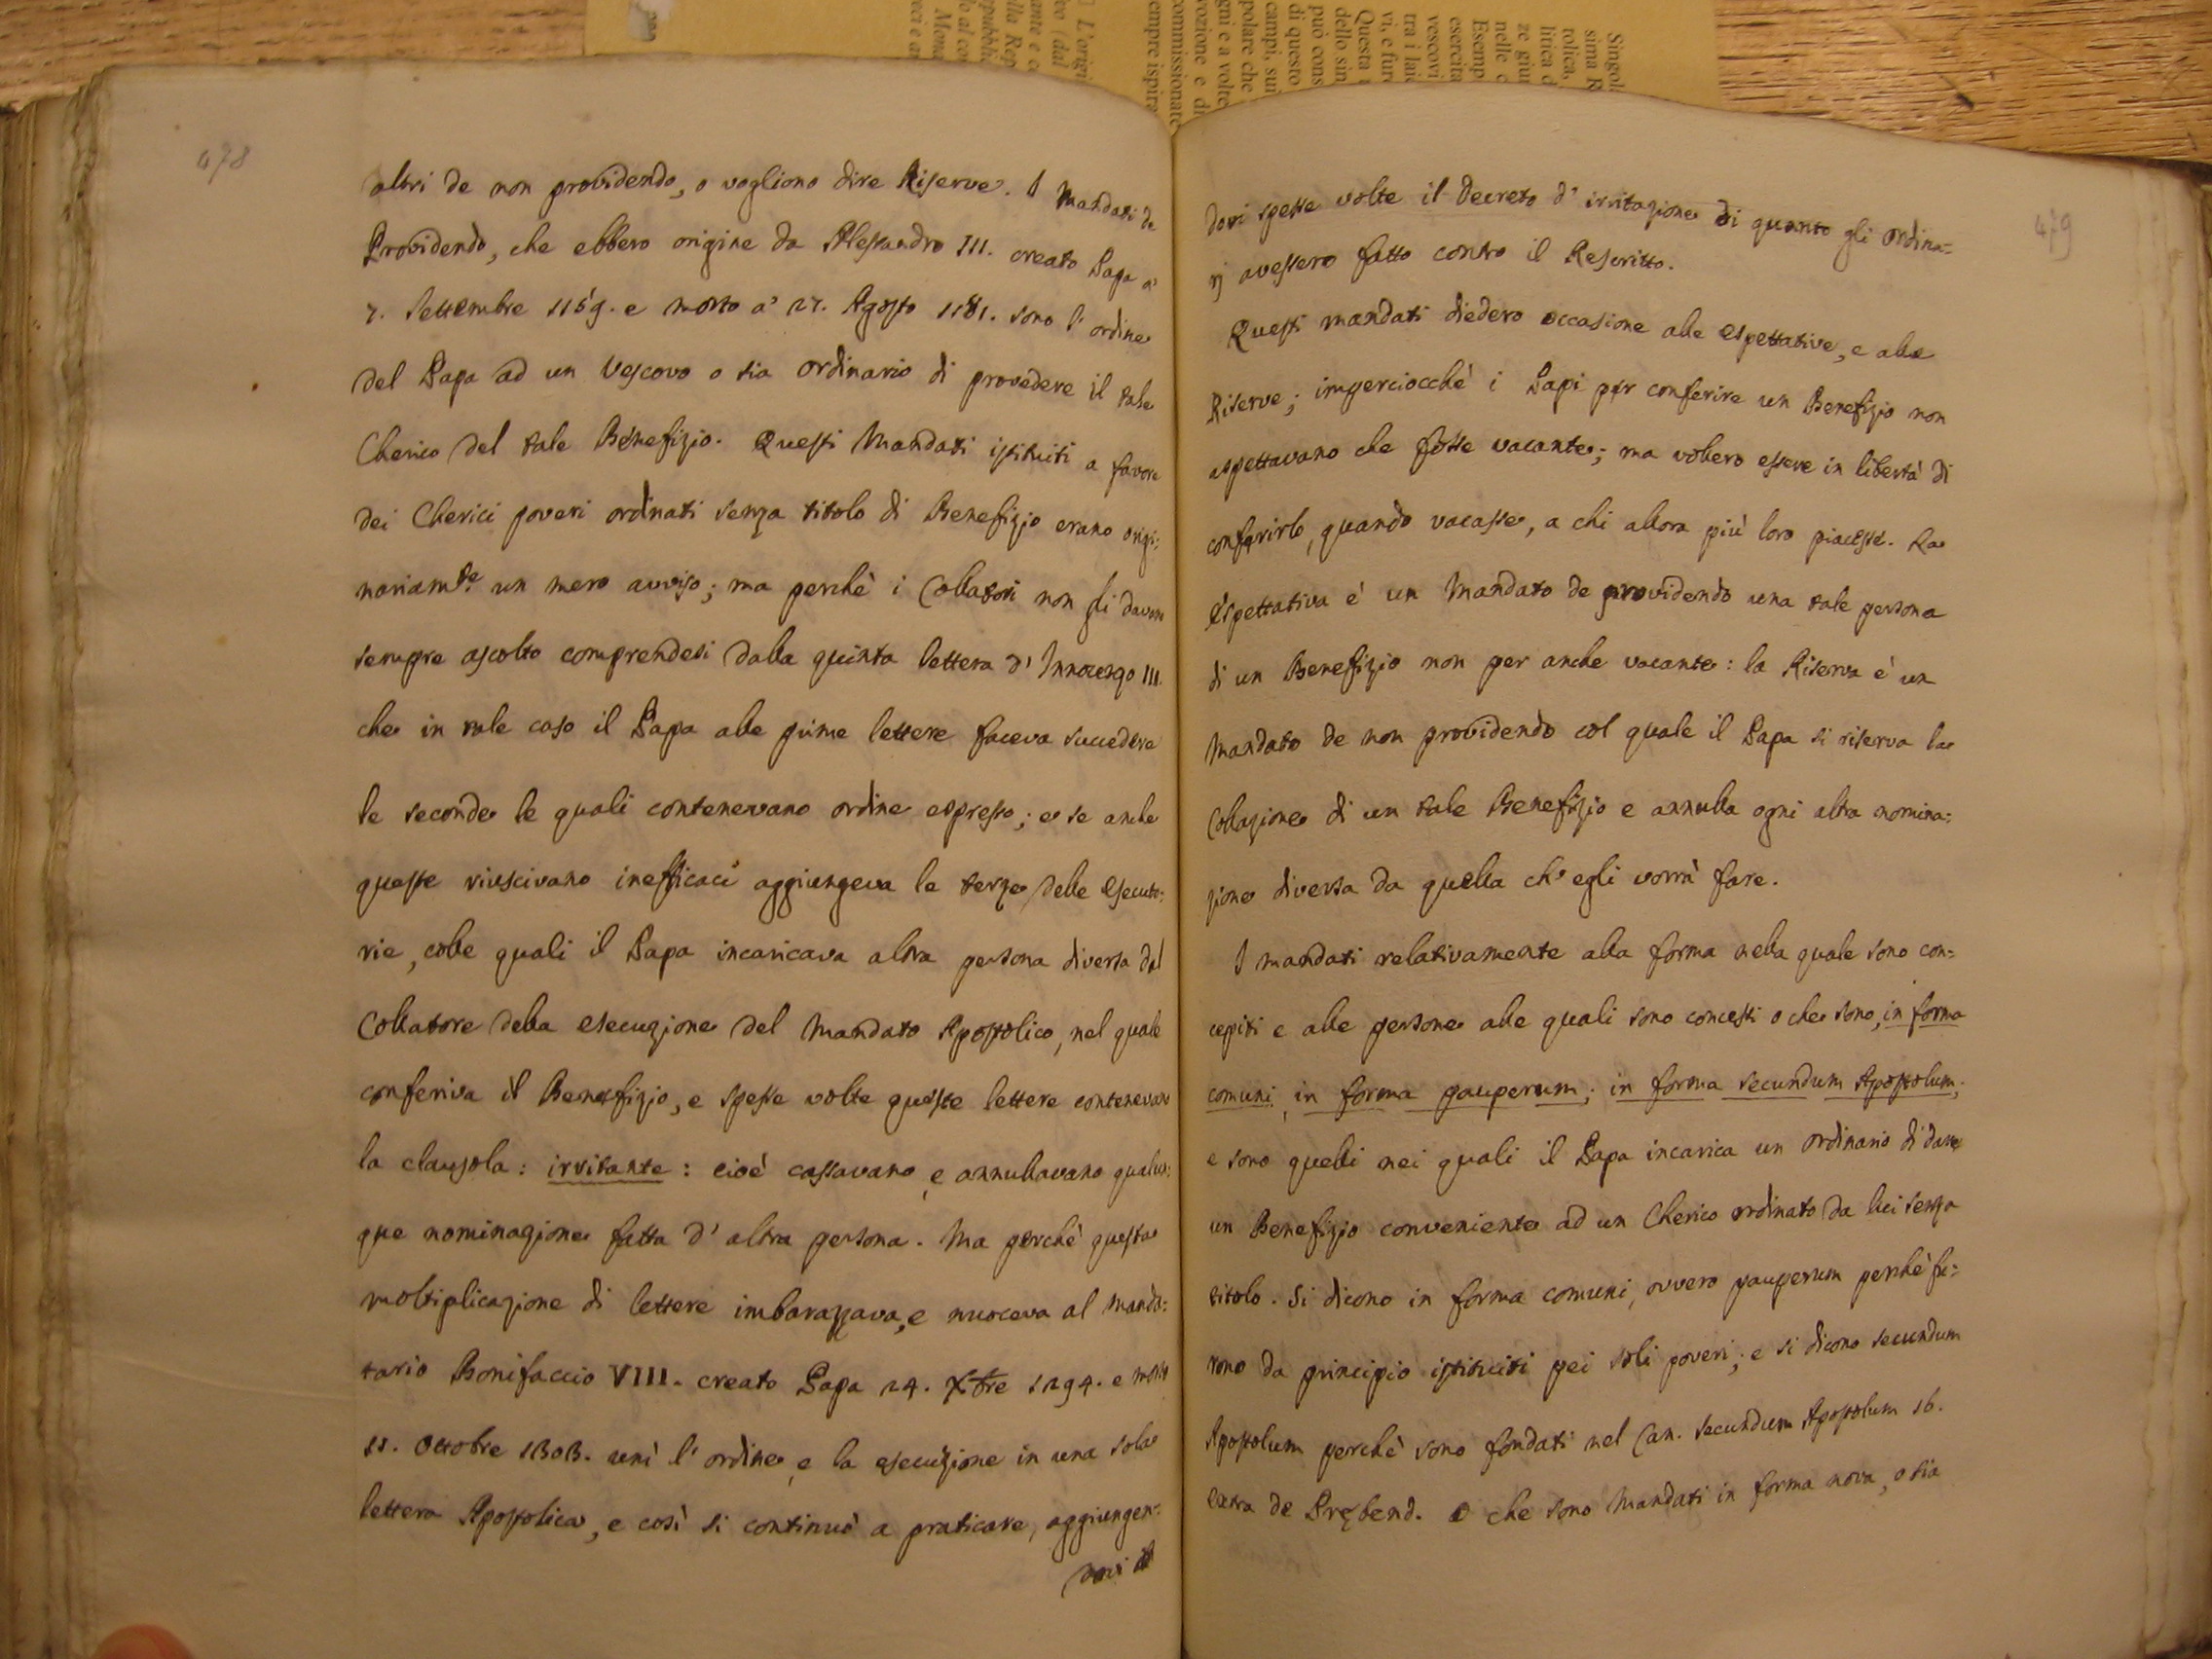 478
altri de non providendo, o vogliono dire Riserve. I Mandati de
Providendo, che ebbero origine da Alessandro III. creato Papa a'
7. Settembre 1159. e morto a' 27. Agosto 1181. sono l' ordine
del Papa ad un Vescovo o sia ordinario di provedere il tale
Cherico del tale Benefizio. Questi Mandati istituiti a favore
dei Cherici poveri ordinati senza titolo di Benefizio erano origi:
nariamte un mero avviso; ma perchè i Collatori non li davano
sempre ascolto comprendesi dalla quinta lettera d' Innocenzo III.
che in tale caso il Papa alle prime lettere faceva succedere
le seconde le quali contenevano ordine espresso; e se anche
queste riuscivano inefficaci aggiungeva le terze delle esecuto:
rie, colle quali il Papa incaricava altra persona diversa dal
Collatore della esecuzione del Mandato Apostolico, nel quale
conferiva il Benefizio, e spesse volte queste lettere contenevano
la clausola: irritante: cioè cassavano, e annullavano qualun:
que nominazione fatta d' altra persona. Ma perchè questa
moltiplicazione di lettere imbarazzava, e nuoceva al manda:
tario Bonifaccio VIII. creato Papa 24. Xbre 1294. e morto
11. Ottobre 1303. unì l' ordine, e la esecuzione in una sola
lettera Apostolica, e così si continuò a praticare, aggiungen:
dovi il
479
dovi spesse volte il Decreto d' irritazione di quanto gli ordina:
rj avessero fatto contro il Rescritto.
Questi mandati diedero occasione alle espettative, e alle
Riserve; imperciocchè i Papi per conferire un Benefizio non
aspettavano che fosse vacante; ma vollero essere in libertà di
conferirlo, quando vacasse, a chi allora più loro piacesse. La
Espettativa è un Mandato de providendo una tale persona
di un Benefizio non per anche vacante: la Riserva è un
Mandato de non providendo col quale il Papa si riserva la
Collazione di un tale Benefizio e annulla ogni altra nomina:
zione diversa da quella ch' egli vorrà fare.
I mandati relativamente alla forma nella quale sono con:
cepiti e alle persone alle quali sono concessi o che sono, in forma
comuni, in forma pauperum; in forma secundum Apostolum;
e sono quelli nei quali il Papa incarica un ordinario di dare
un Benefizio conveniente ad un Cherico ordinato da lui senza
titolo. Si dicono in forma comuni, ovvero pauperum perchè fu:
rono da principio istituiti pei soli poveri; e si dicono secundum
Apostolum perchè sono fondati nel Can. Secundum Apostolum 16.
extra de Prębend. O che sono Mandati in forma nova, o sia